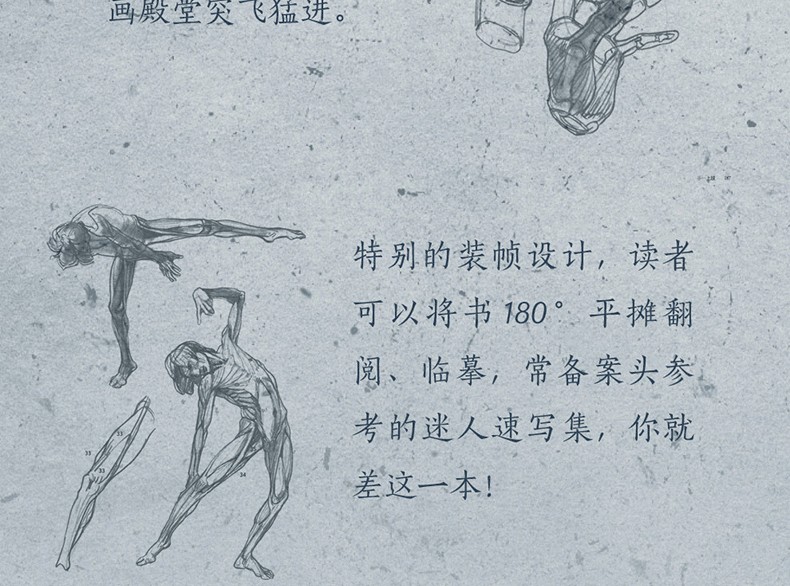 画殿堂突飞猛进。
特别的装帧设计，读者
可以将书 180° 平摊翻
阅、临摹，常备案头参
考的迷人速写集，你就
差这一本！
33
33
33
34